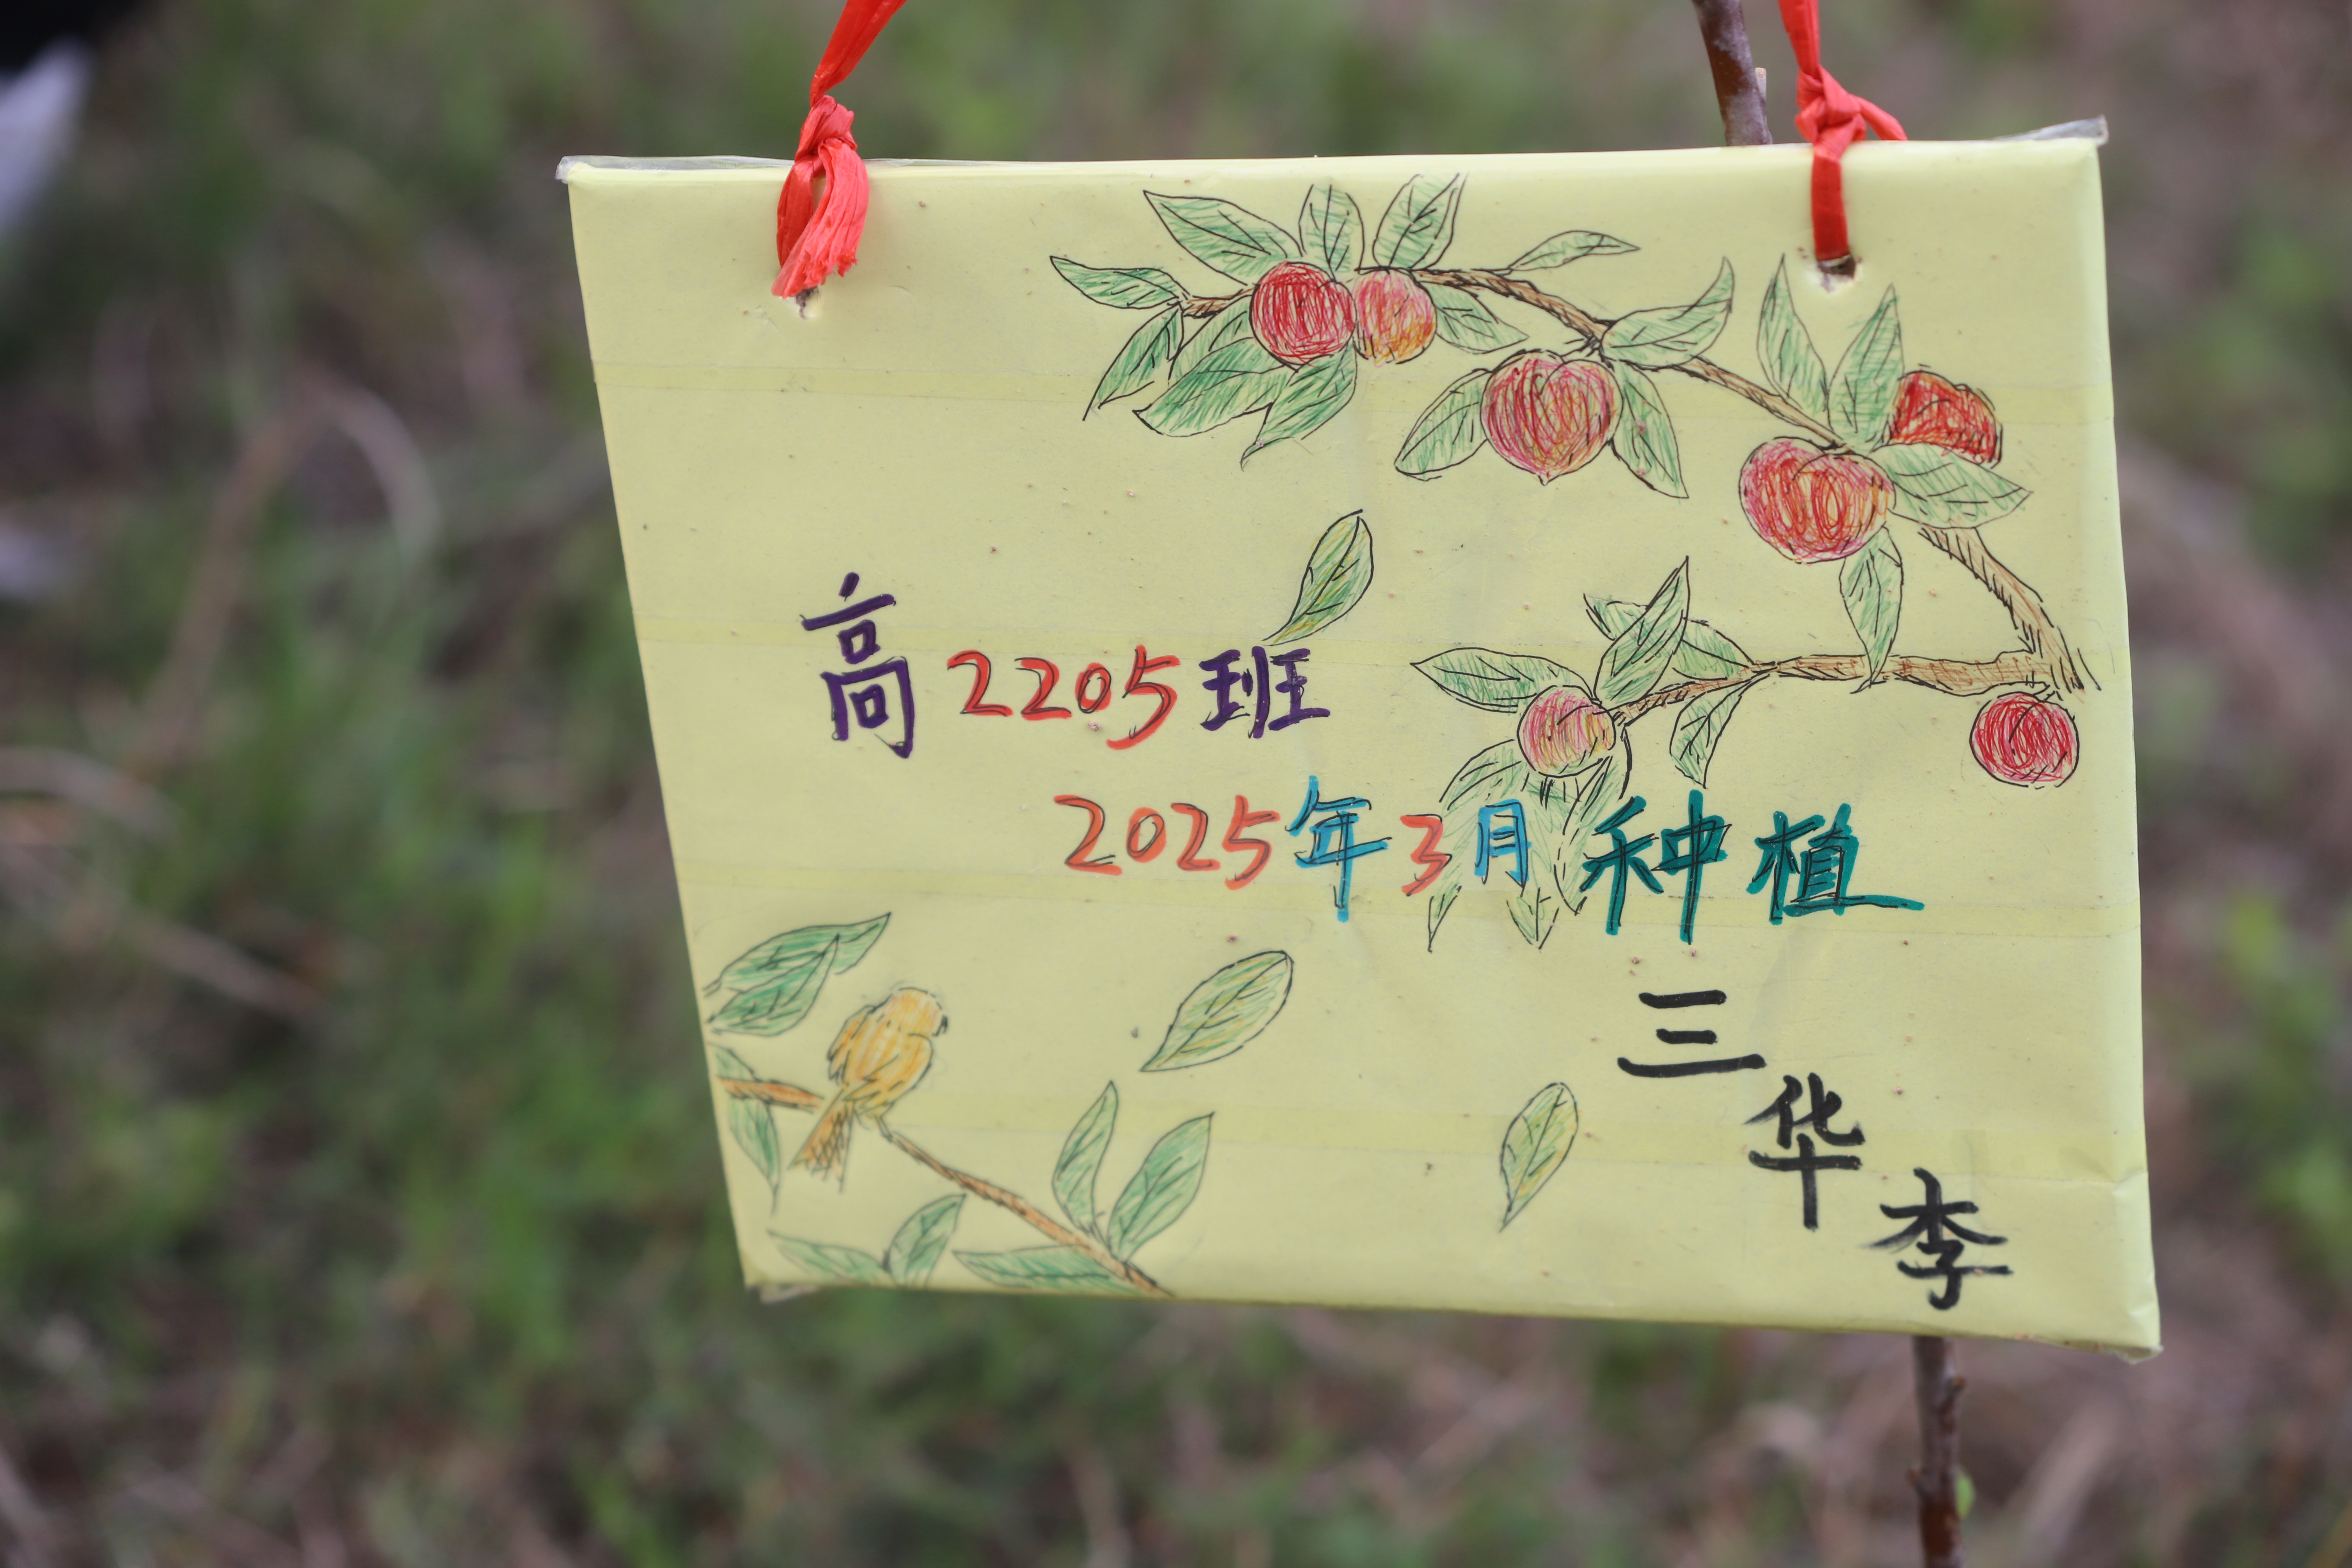 高2205班
2025年3月种植
三华李